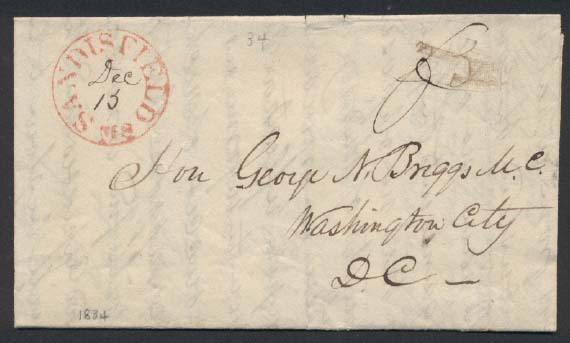 34
SANDISFIELD
Dec
15
Hon George N. Briggs M.C.
Washington City
D.C –
1834